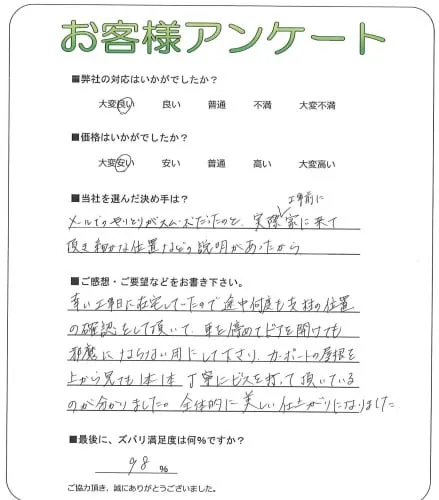 お客様アンケート
■弊社の対応はいかがでしたか?
大変良い 良い 普通 不満 大変不満
■価格はいかがでしたか?
大変安い 安い 普通 高い 大変高い
■当社を選んだ決め手は?
工事前に
メールでのやりとりがスムーズだったのと、実際家に来て
頂き細かな位置などの説明があったから
■ご感想・ご要望などをお書き下さい。
幸い工事日に在宅していたので途中何度も支柱の位置
の確認をして頂いて、車を停めてドアを開けても
邪魔にならない用にして下さり、カーポートの屋根を
上から見ても1本1本丁寧にビスを打って頂いている
のが分かりました。全体的に美しい仕上がりになりました
■最後に、ズバリ満足度は何%ですか?
98 %
ご協力頂き、誠にありがとうございました。